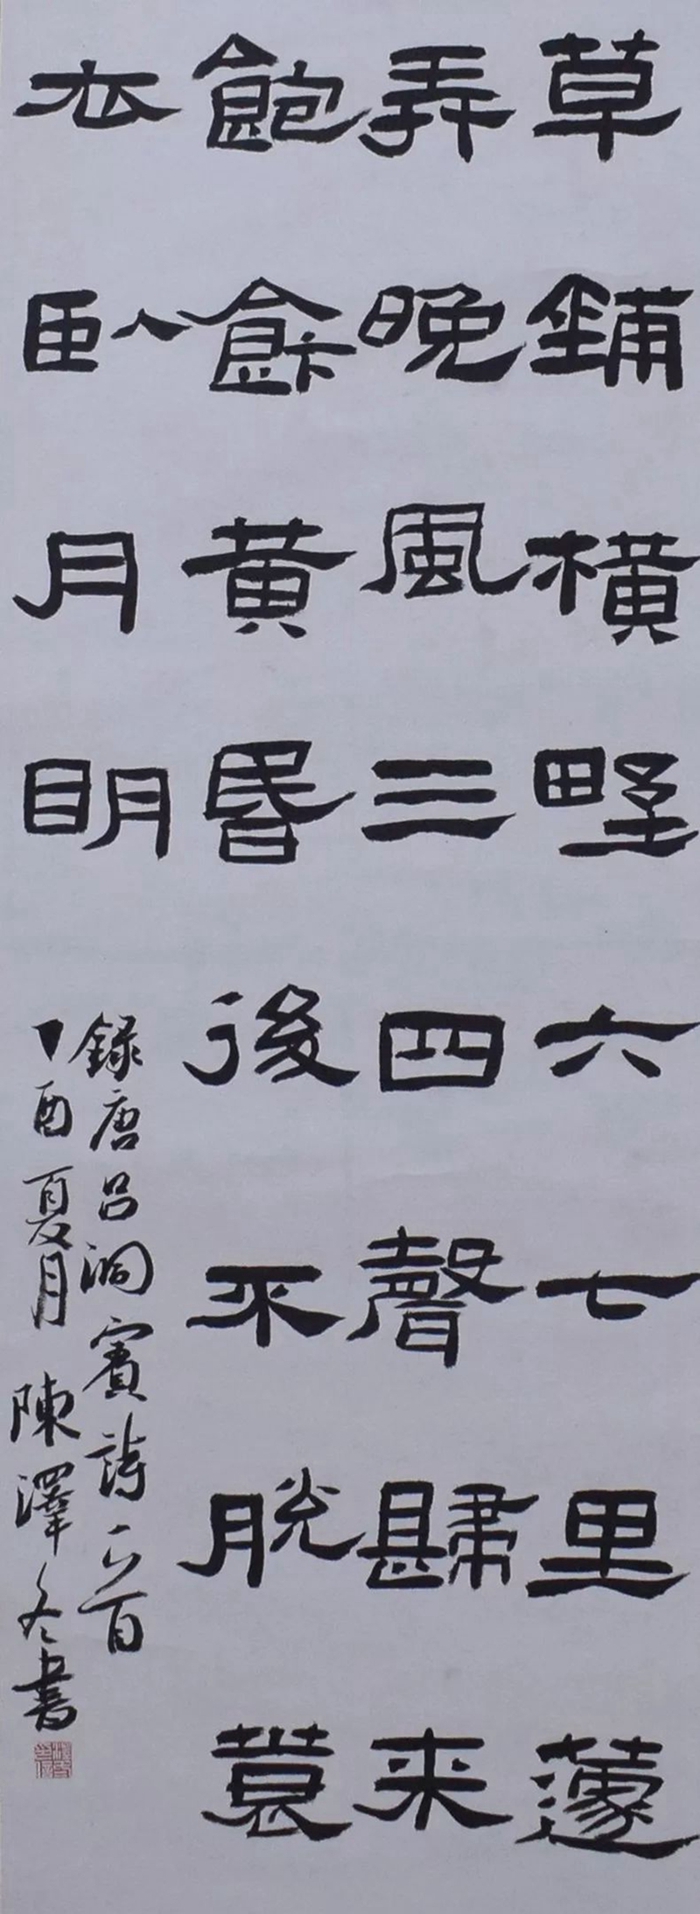 草鋪橫野六七里篴
弄晚風三四聲歸来
飽飰黃昬後不脫蓑
衣臥月眀
錄唐呂洞賓詩一首
丁酉夏月 陳澤冬書